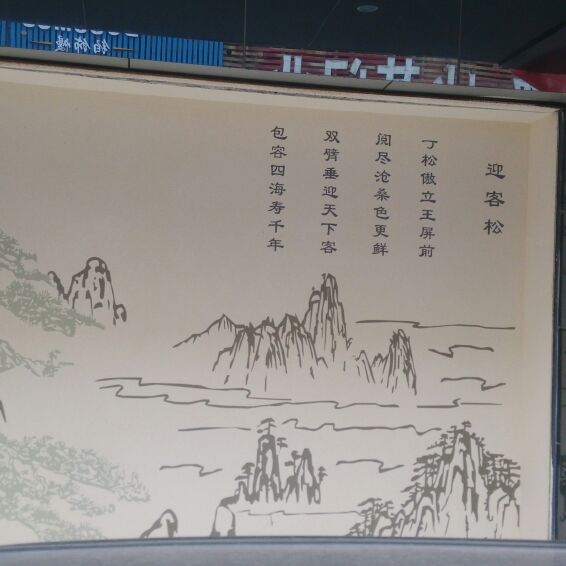 迎客松
丁松傲立王屏前
阅尽沧桑色更鲜
双臂垂迎天下客
包容四海寿千年